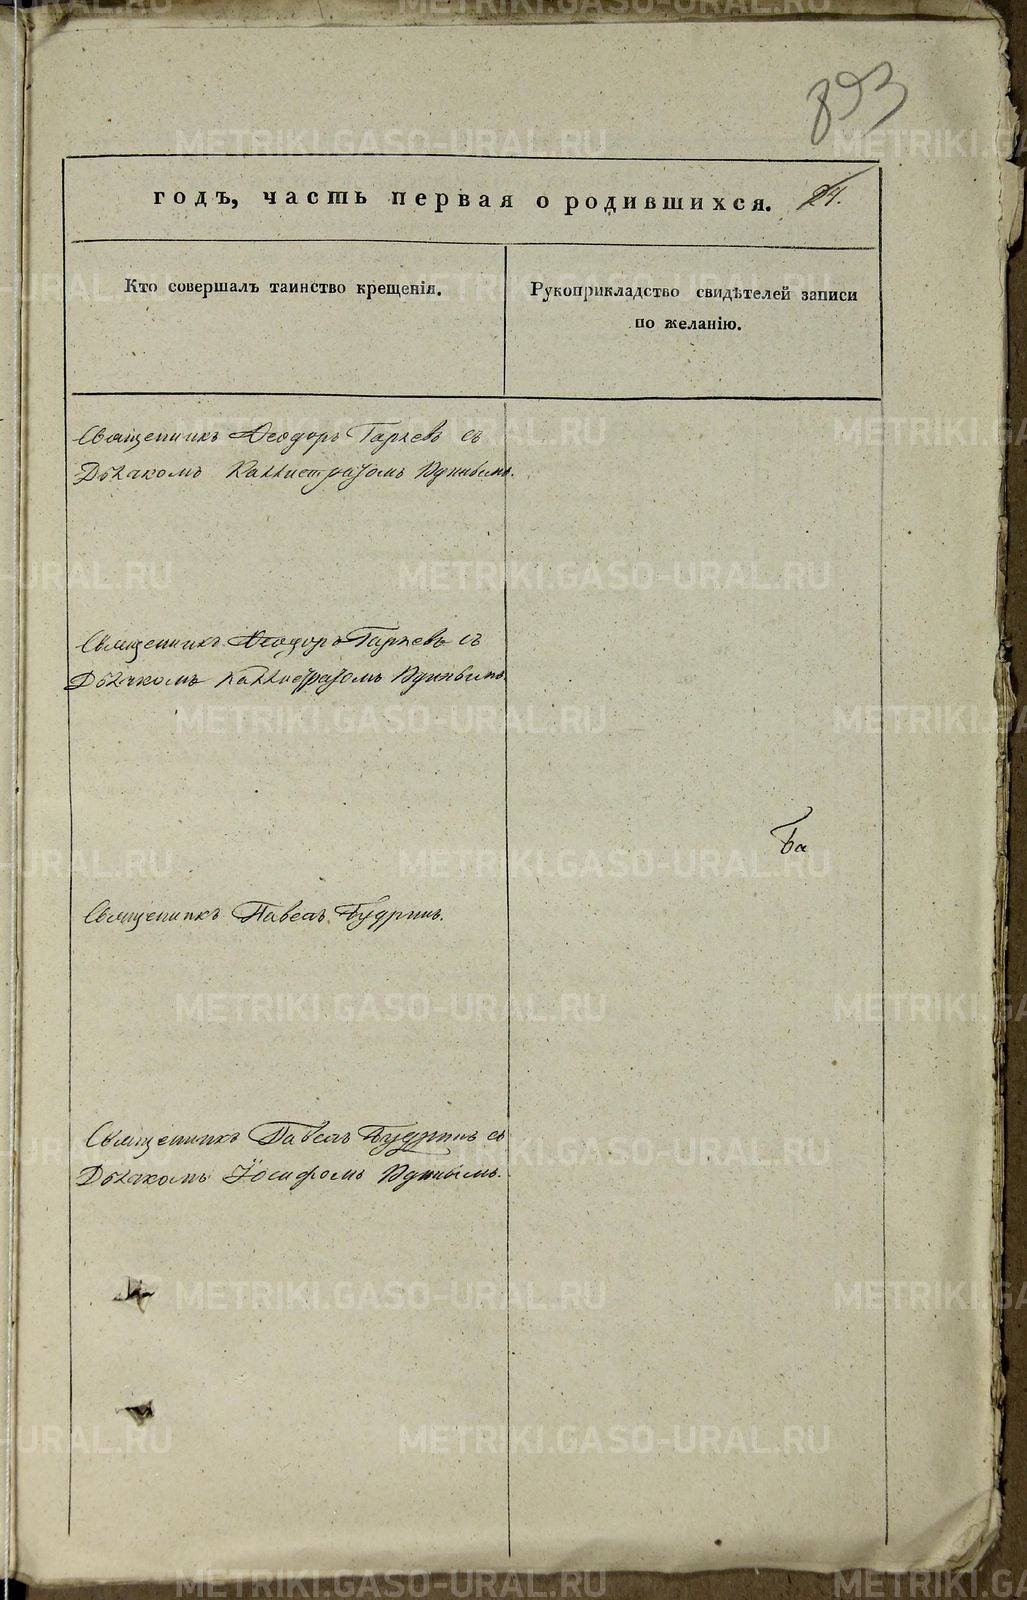 893
годъ, часть первая о родившихся. 24.
Кто совершалъ таинство крещенія.
Рукоприкладство свидѣтелей записи
по желанію.
Священникъ Ѳеодоръ Гаряевъ съ
Дьячкомъ Каллистратомъ
Священникъ Ѳеодоръ Гаряевъ съ
Дьячкомъ Каллистратомъ
Ба
Священникъ Павелъ Будринъ.
Священникъ Павелъ Будринъ съ
Дьячкомъ Іосифомъ
METRIKI.GASO-URAL.RU